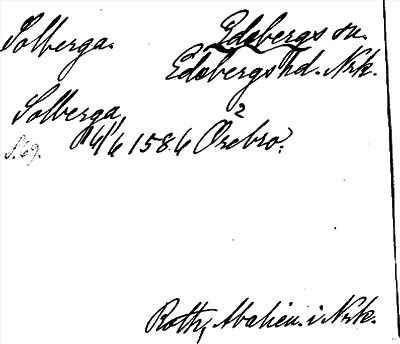 Solberga. Edsbergs sn.
Edsbergs hd. Nrk.
Solberga
14/6 1586 Örebro:
S. 69.
Roth, i Nrk.